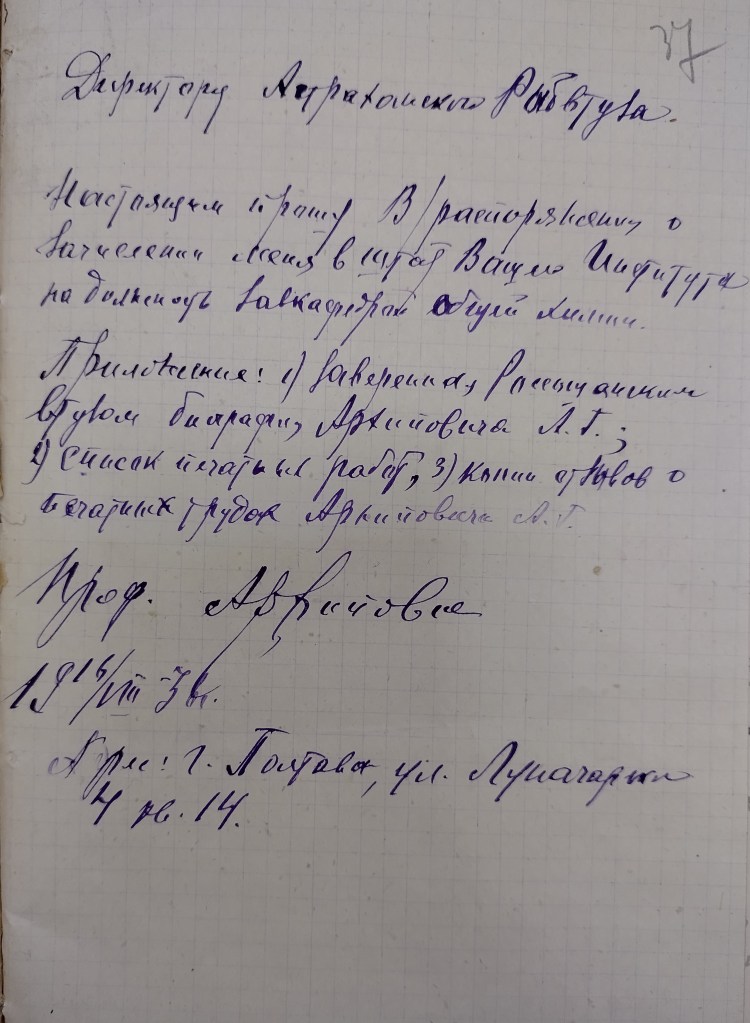 37
Директору Астраханского Рыбвтуза.
Настоящим прошу В/распоряжения о
зачислении меня в штат Вашего Института
на должность завкафедрой общей химии.
Приложение: 1) заверенная
втузом биография Архиповича А. Г.;
2) список печатных работ, 3) копии отзывов о
печатных трудах Архиповича А. Г.
Проф. Архипович
19 16/VIII 3 г.
Адрес: г. Полтава, ул. Луначарского
4 кв. 14.